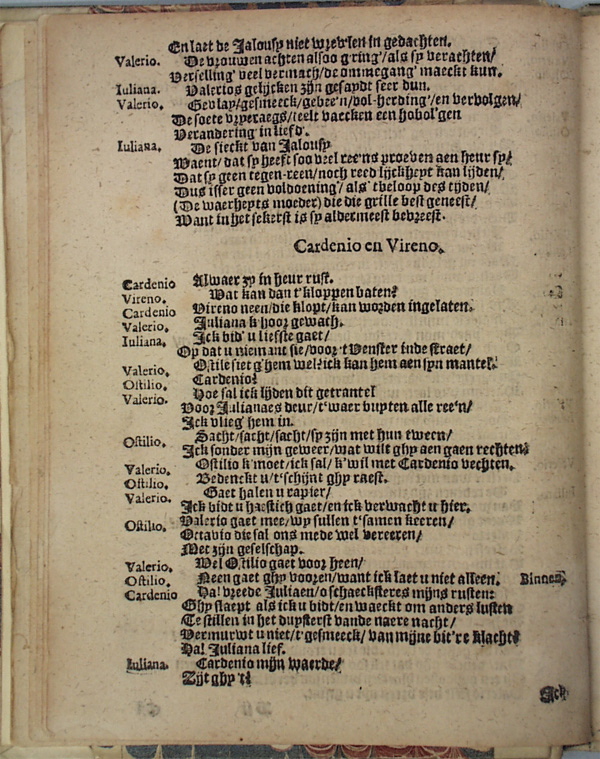 En laet de Jalousy niet wrev'len in gedachten.
Valerio. De vrouwen achten alsoo g'ring'/als sy verachten/
Verselling' veel vermach/de ommegang' maeckt kun.
Iuliana. Valerios gelijcken zijn gesaydt seer dun.
Valerio. Gevlay/gesmeeck/gebee'n/vol-herding'/en vervolgen/
De soete vryeraegs/teelt vaecken een hobol'gen
Verandering' in lief'd.
Iuliana. De sieckt van Jalousy
Waent/dat sy heeft soo veel ree'ns proeven aen heur sy/
Dat sy geen tegen-reen/noch reed'lijckheyt kan lijden/
Dus isser geen voldoening'/als t'beloop des tijden/
(De waerheyts moeder) die die grille best geneest/
Want in het sekerst is sy aldermeest bevreest.
Cardenio en Vireno.
Cardenio Alwaer zy in heur rust.
Vireno. Wat kan dan t'kloppen baten?
Cardenio Vireno neen/die klopt/kan worden ingelaten.
Valerio. Juliana k'hoor gewach.
Iuliana. Ick bid' u liefste gaet/
Op dat u niemant sie/door 't Venster inde straet/
Valerio. Ostilio siet g'hem wel? ick kan hem aen syn mantel.
Ostilio. Cardenio?
Valerio. Hoe sal ick lijden dit getrantel
Voor Julianaes deur/t'waer buyten alle ree'n/
Ick vlieg' hem in.
Ostilio. Sacht/sacht/sacht/sy zijn met hun tween/
Ick sonder mijn geweer/wat wilt ghy aen gaen rechten?
Valerio. Ostilio k'moet/ick sal/k'wil met Cardenio vechten.
Ostilio. Bedenckt u/t'schijnt ghy raest.
Valerio. Gaet halen u rapier/
Ick bidt u haestich gaet/en ick verwacht u hier.
Ostilio. Valerio gaet mee/wy sullen t'samen keeren/
Octavio die sal ons mede wel vereeren/
Met zijn geselschap.
Valerio. Wel Ostilio gaet voor heen/
Ostilio. Neen gaet ghy vooren/want ick laet u niet alleen. Binnen.
Cardenio Ha! vreede Juliaen/o schaecksteres mijns rusten?
Ghy slaept als ick u bidt/en waeckt om anders lusten
Te stillen in het duysterst vande naere nacht/
Vermurwt u niet/t'gesmeeck/van mijne bit're klacht?
Ha! Juliana lief.
Iuliana. Cardenio mijn waerde/
Zijt ghy 't?
Ick